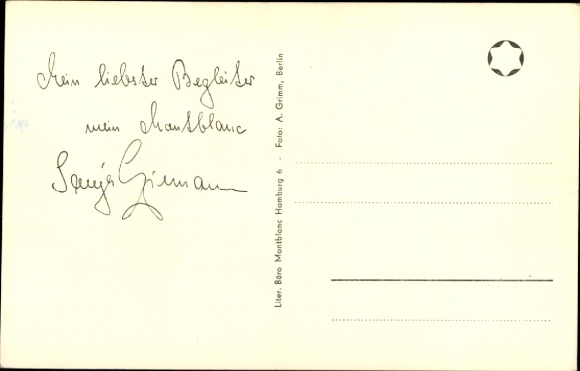 Mein liebster Begleiter
mein Montblanc
Sonja Ziemann
Liter. Büro Montblanc Hamburg 6 · Foto: A. Grimm, Berlin